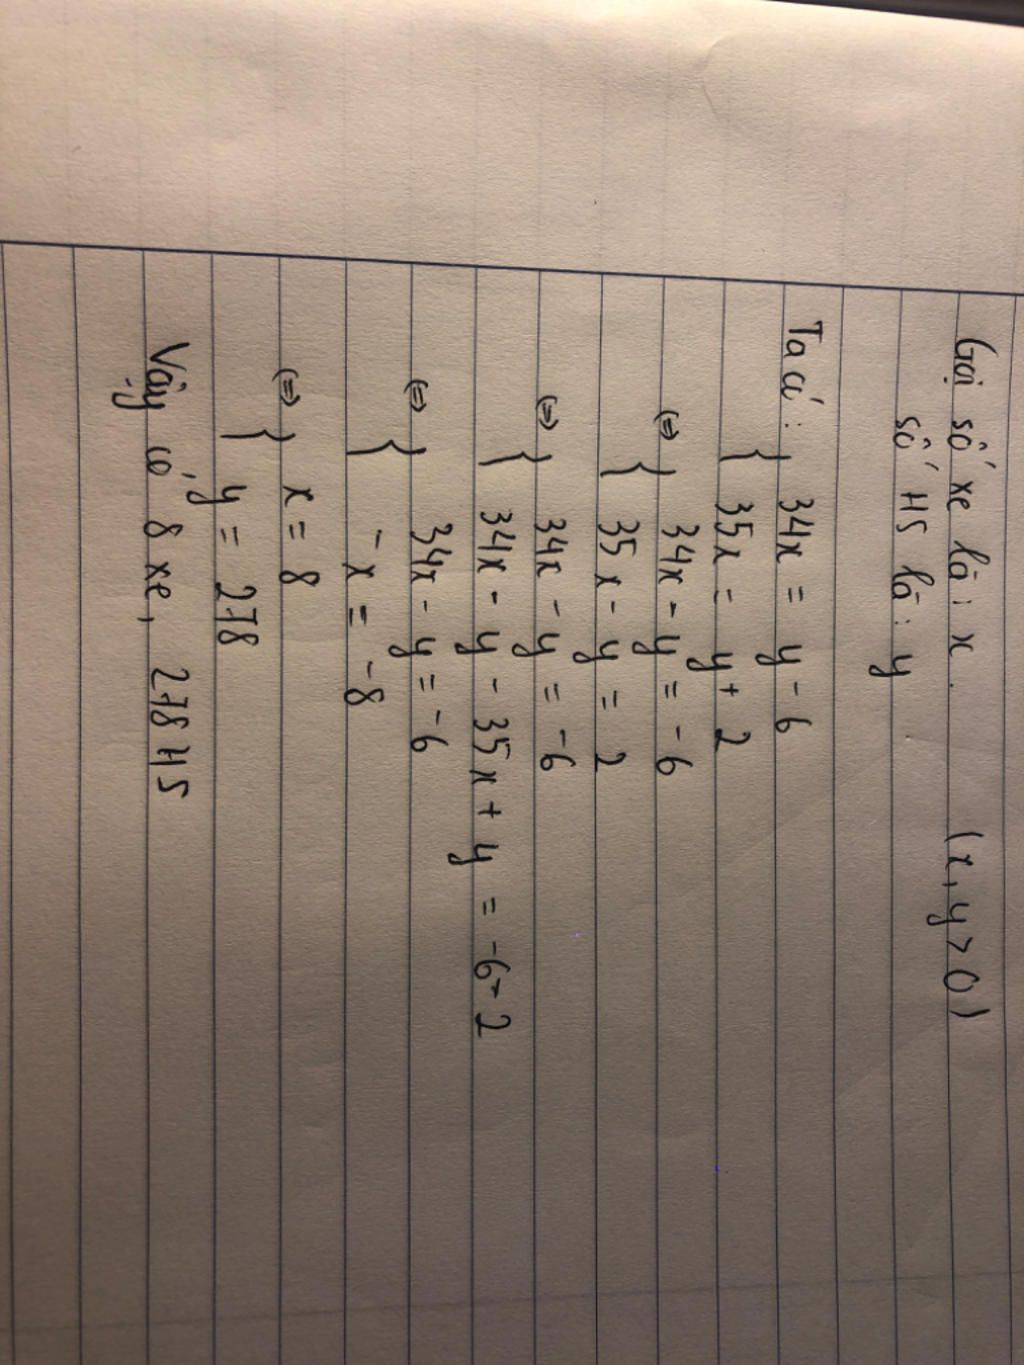 Gọi số xe là: x. (x, y > 0)
số HS là: y
Ta có: { 34x = y - 6
35x = y + 2
(=) { 34x - y = -6
35x - y = 2
(=) { 34x - y = -6
34x - y - 35x + y = -6 - 2
(=) { 34x - y = -6
-x = -8
(=) { x = 8
y = 278
Vậy có 8 xe, 278 HS